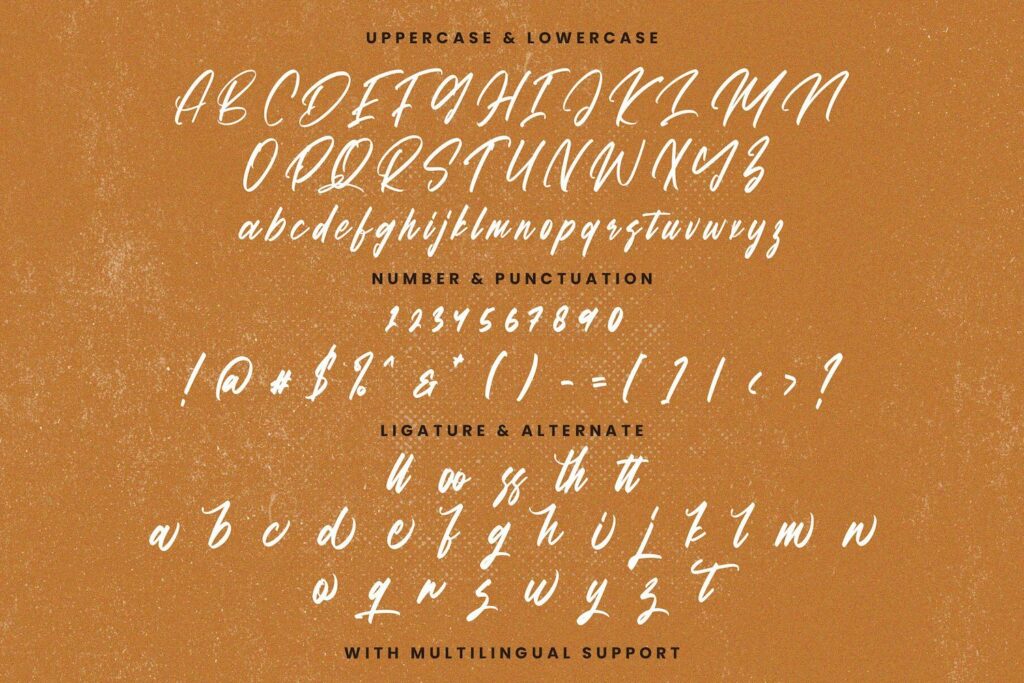 UPPERCASE & LOWERCASE
ABCDEFGHIJKLMN
OPQRSTUVWXYZ
abcdefghijklmnopqrstuvwxyz
NUMBER & PUNCTUATION
1234567890
!@#$%^&*()-=[]|<>?
LIGATURE & ALTERNATE
ll oo ss th tt
a b c d e f g h i j k l m n
o q r s w y z t
WITH MULTILINGUAL SUPPORT